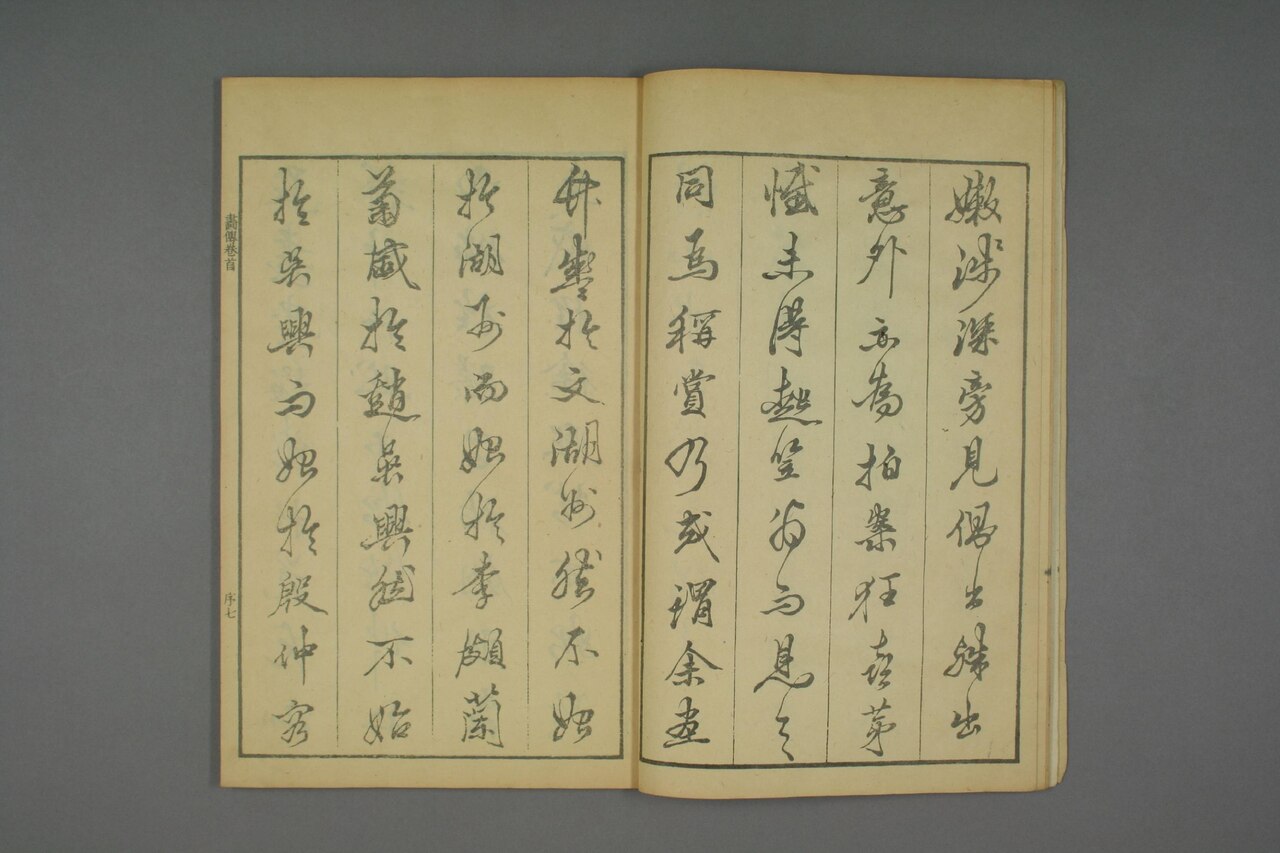 嫩淺深旁見側出殊出
意外亦為拍案狂喜第
憾未得起笠翁而見之
同為稱賞乃或謂余畫
竹盛於文湖州然不始
於湖州而始於李頗蘭
菊盛於趙吳興然不始
於吳興而始於殷仲容
畫傳卷首
序七